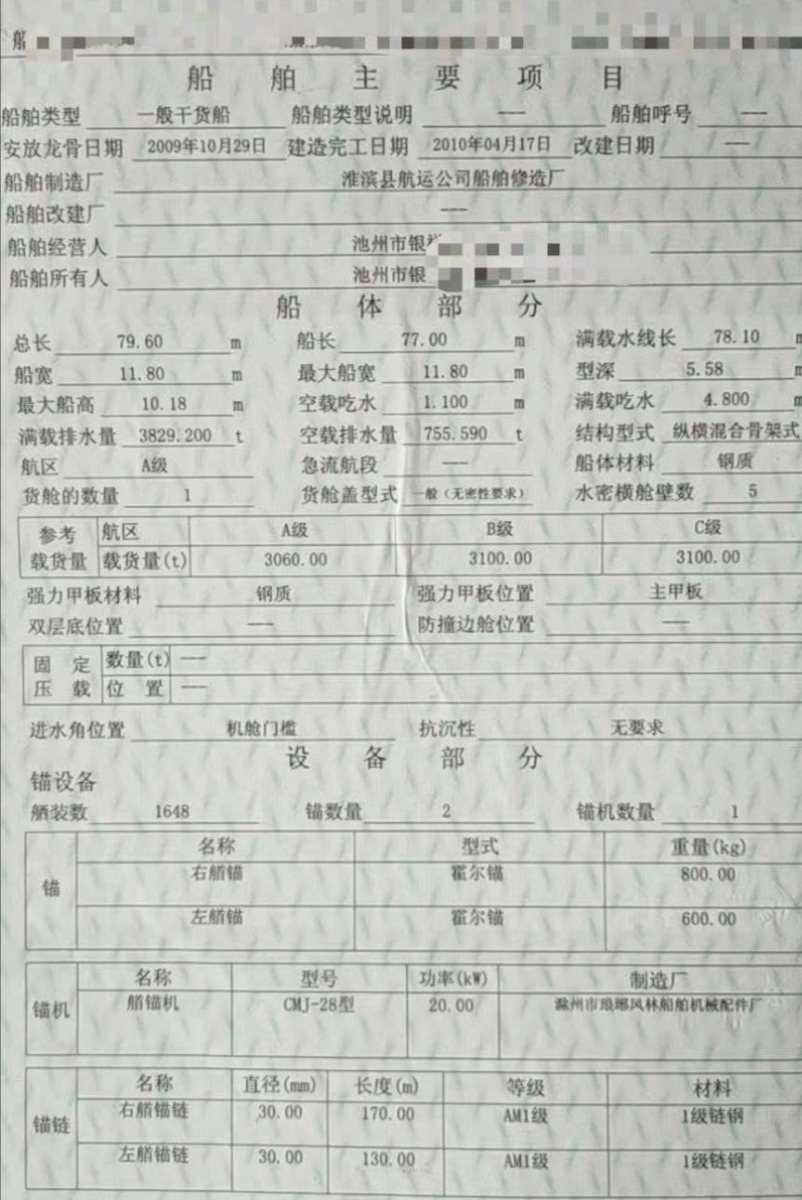 船舶主要项目
船舶类型 一般干货船 船舶类型说明 —— 船舶呼号 ——
安放龙骨日期 2009年10月29日 建造完工日期 2010年04月17日 改建日期 ——
船舶制造厂 淮滨县航运公司船舶修造厂
船舶改建厂 ——
船舶经营人 池州市银
船舶所有人 池州市银
船体部分
总长 79.60 m 船长 77.00 m 满载水线长 78.10 m
船宽 11.80 m 最大船宽 11.80 m 型深 5.58 m
最大船高 10.18 m 空载吃水 1.100 m 满载吃水 4.800 m
满载排水量 3829.200 t 空载排水量 755.590 t 结构型式 纵横混合骨架式
航区 A级 急流航段 —— 船体材料 钢质
货舱的数量 1 货舱盖型式 一般（无密性要求） 水密横舱壁数 5
参考 航区 A级 B级 C级
载货量 载货量(t) 3060.00 3100.00 3100.00
强力甲板材料 钢质 强力甲板位置 主甲板
双层底位置 —— 防撞边舱位置 ——
固定 数量(t) ——
压载 位置 ——
进水角位置 机舱门槛 抗沉性 无要求
设备部分
锚设备
舾装数 1648 锚数量 2 锚机数量 1
名称 型式 重量(kg)
锚 右艏锚 霍尔锚 800.00
左艏锚 霍尔锚 600.00
名称 型号 功率(kW) 制造厂
锚机 艏锚机 CMJ-28型 20.00 滁州市琅琊风林船舶机械配件厂
名称 直径(mm) 长度(m) 等级 材料
锚链 右艏锚链 30.00 170.00 AM1级 1级链钢
左艏锚链 30.00 130.00 AM1级 1级链钢